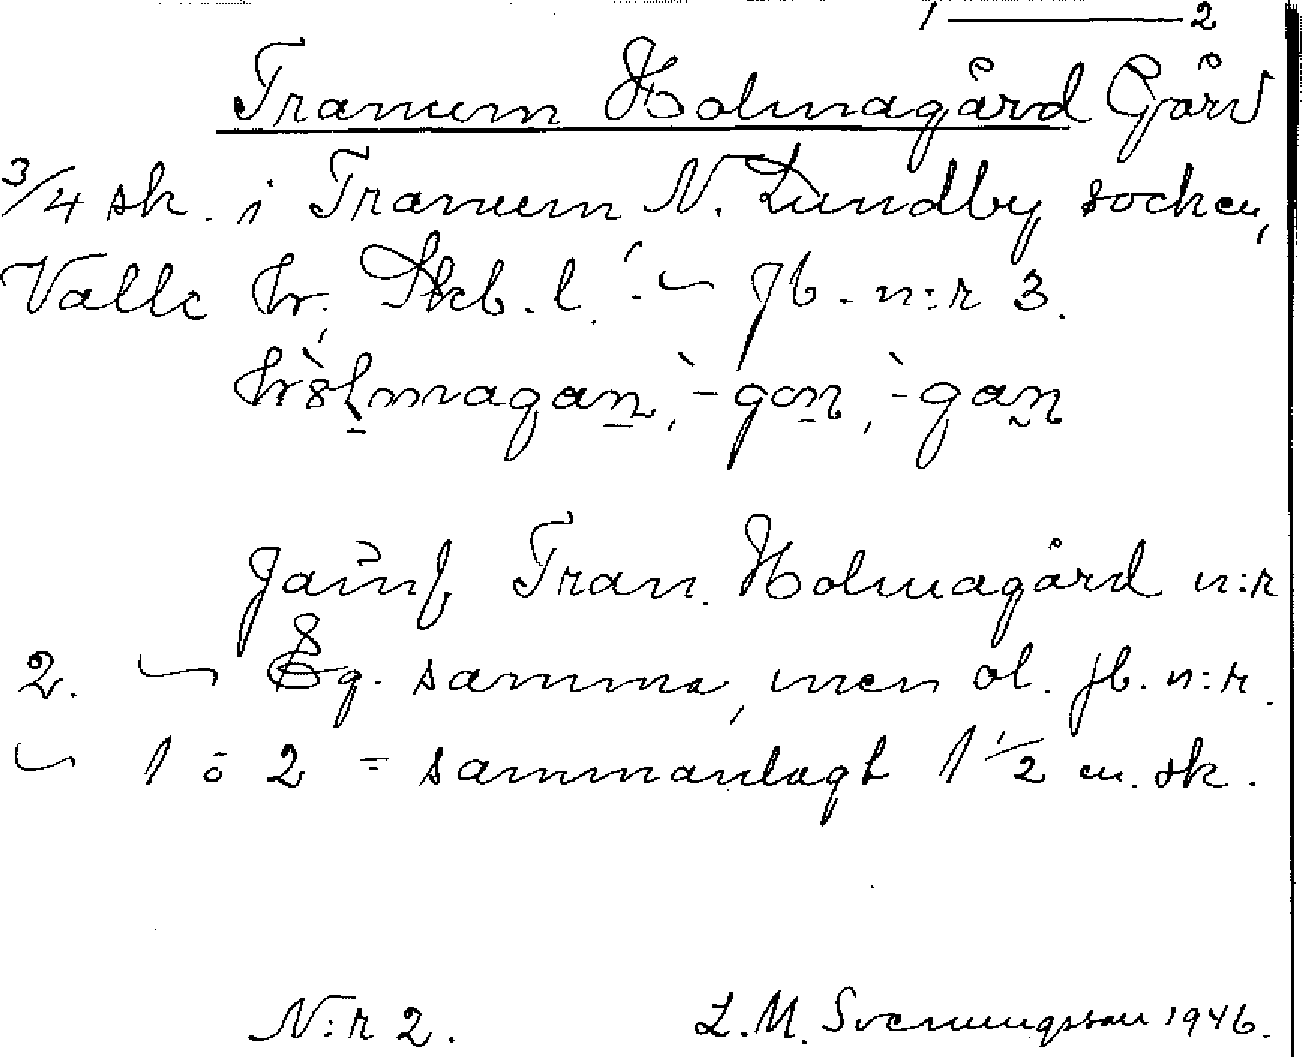 1 — 2
Tranum Holmagård Gård
3/4 sk. i Tranum N. Lundby socken,
Valle hr, Skb. l. ~ Jb. n:r 3.
-gan, -gan
Jämf Tran. Holmagård n:r
2. ~ Eg. samma, men ol. jb. n:r.
~ 1 o 2 = sammanlagt 1 1/2 m. sk.
N:r 2. L. M. Svenungsson 1946.